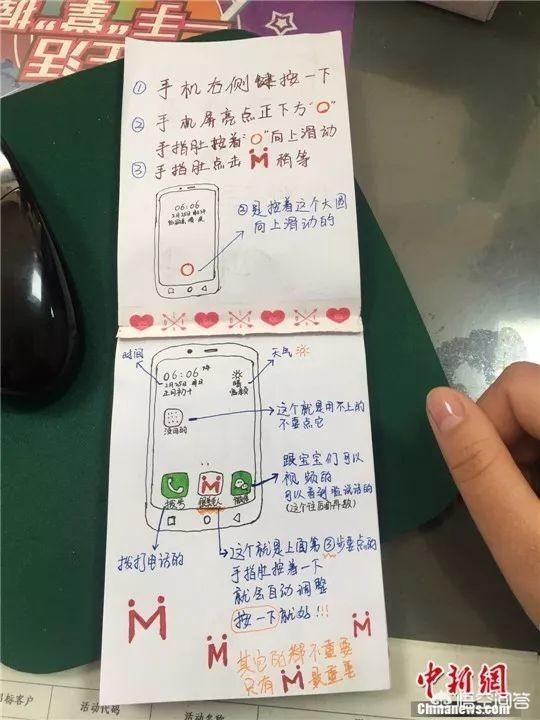 生活
① 手机右侧键按一下
② 手机屏亮点正下方"O"
手指肚按着"O"向上滑动
③ 手指肚点击 M 稍等
06:06
②是按着这个大圆
向上滑动的
时间
天气
06:06
2月25日
正月初十
晴
没用的
这个就是用不上的
不要点它
跟宝宝们可以
视频的
可以看到脸说话的
(这个往后面再教)
拨号
微信
拨打电话的
这个就是上面第③步要点的
手指肚按着一下
就会自动调整
按一下就好!!!
其它的都不重要
只有 M 最重要
中新网
Chinanews.com
悟空问答
招标客户
活动代码
活动名称